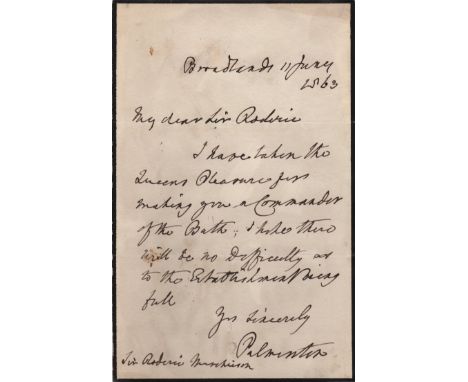 Broadlands 11 Jany
1863
My dear Sir Roderic
I have taken the
Queens Pleasure for
making you a Commander
of the Bath; I hope there
will be no Difficulty as
to the Establishment being
full
Yrs sincerely
Palmerston
Sir Roderic Murchison